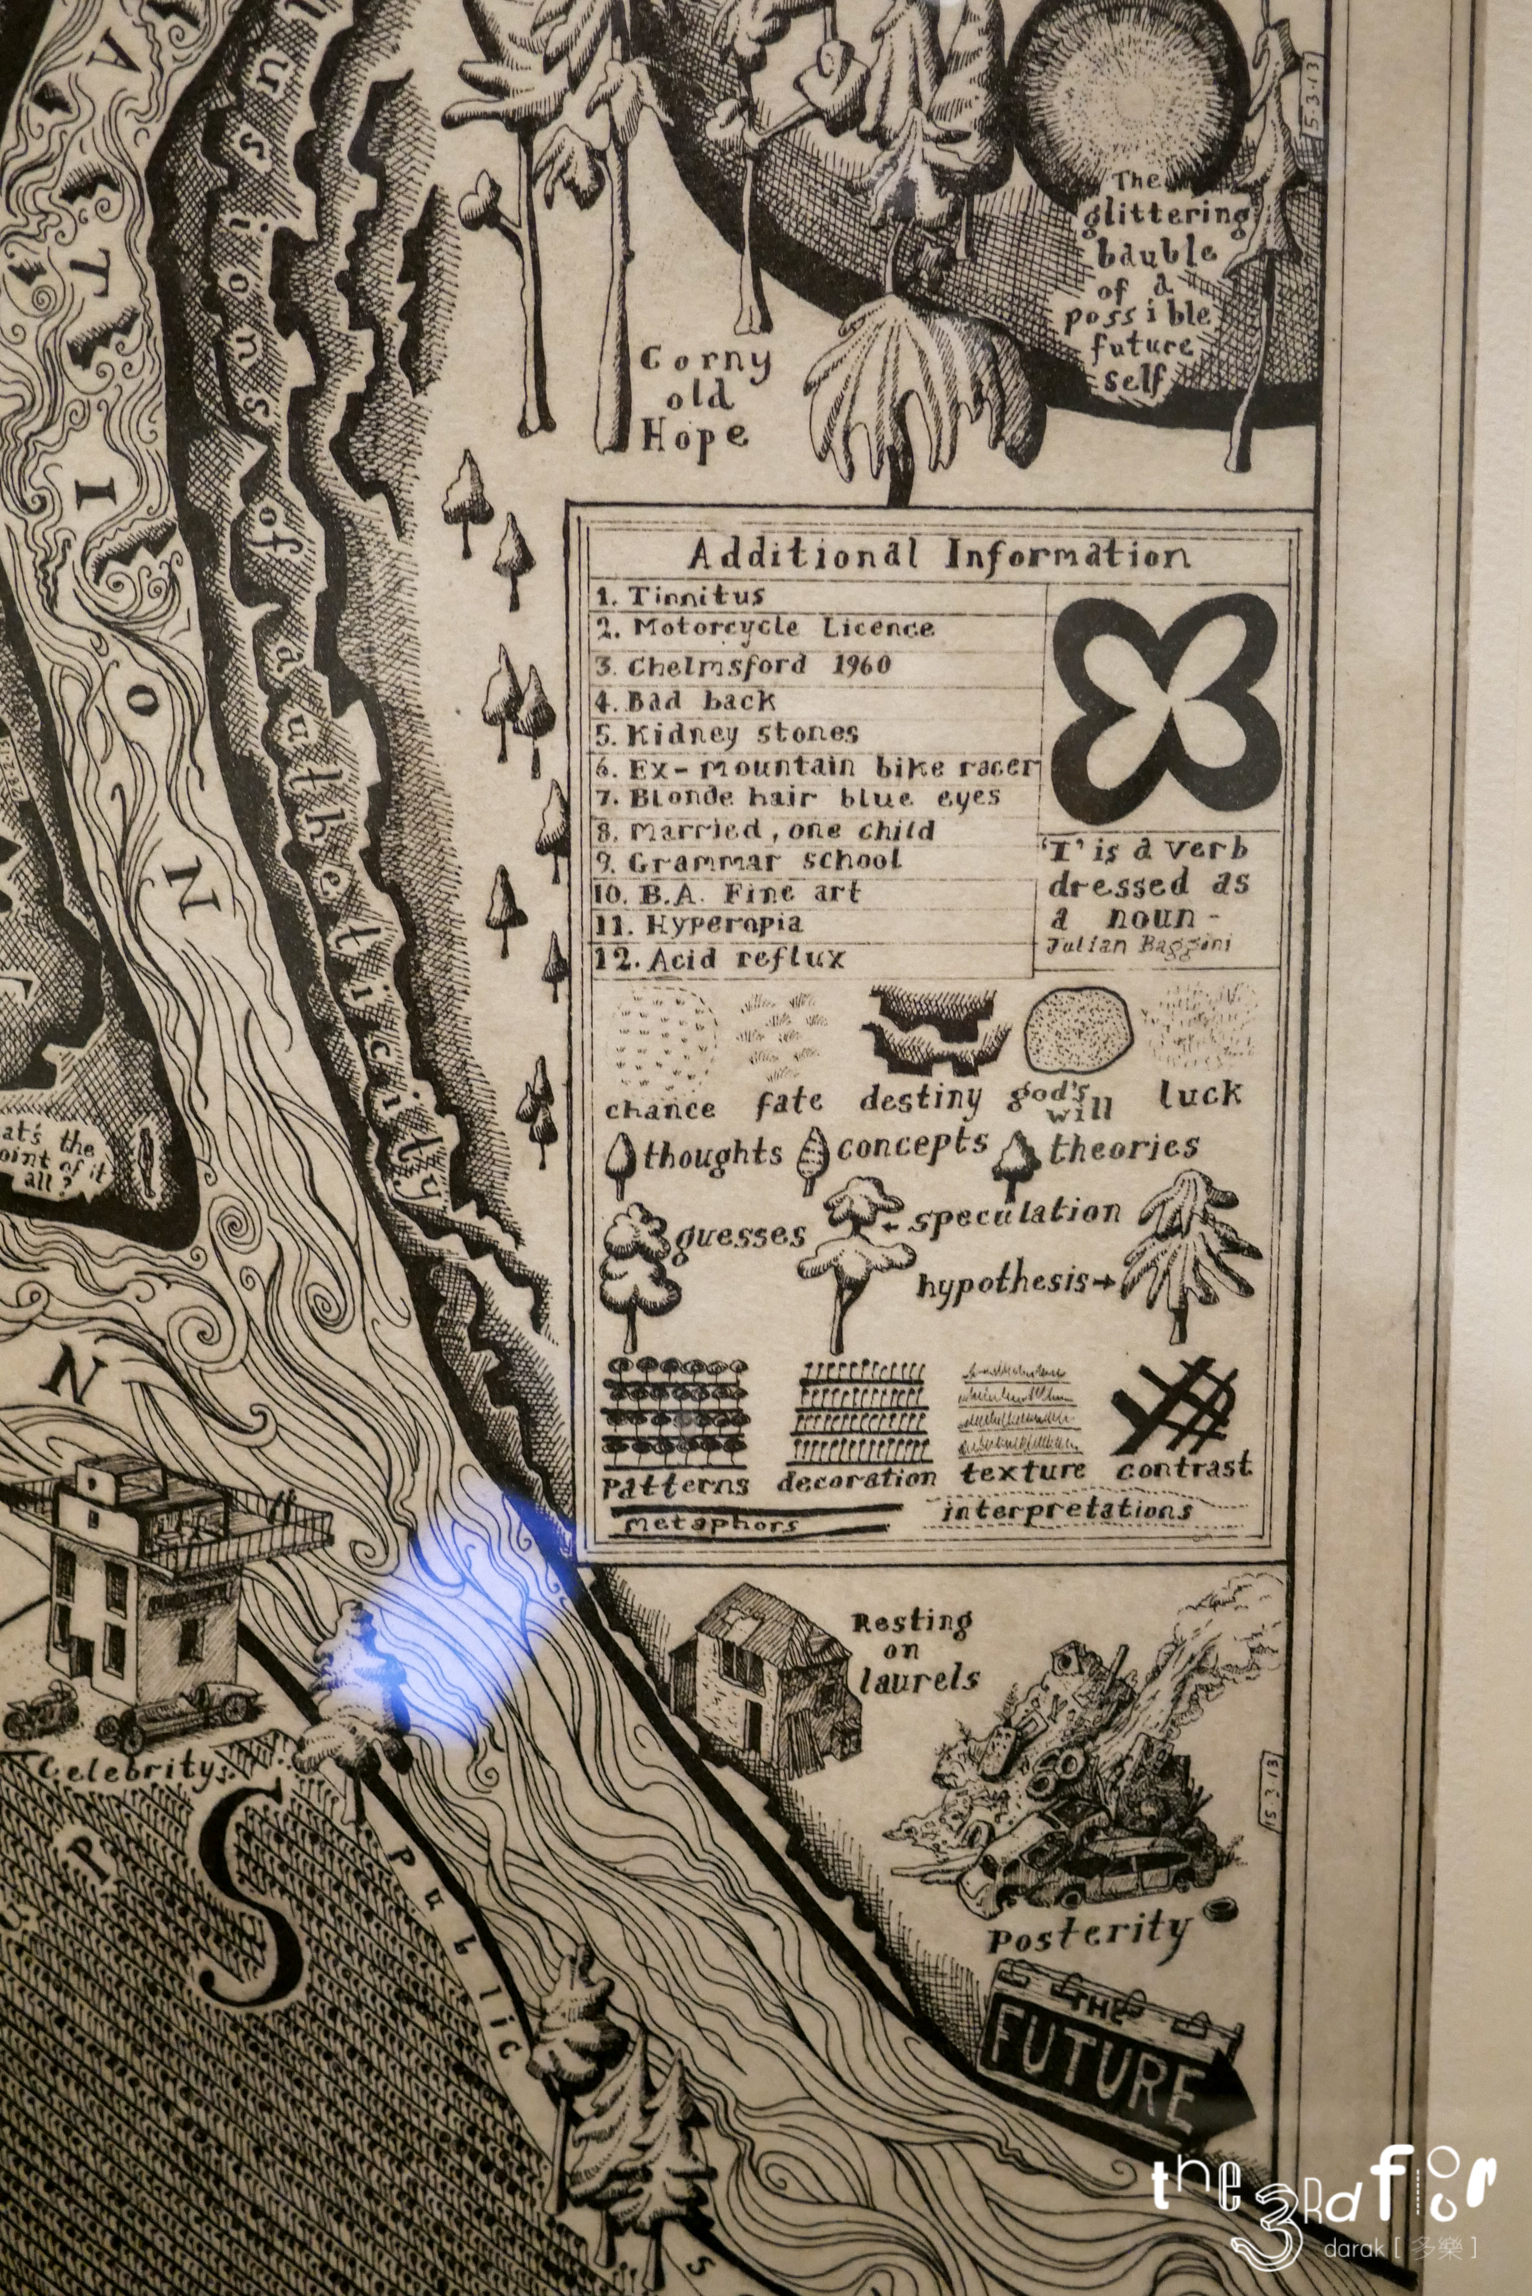 The
glittering
bauble
of a
possible
future
self
5.3.13
Corny
old
Hope
of authenticity
Additional Information
1. Tinnitus
2. Motorcycle Licence
3. Chelmsford 1960
4. Bad back
5. Kidney stones
6. Ex-mountain bike racer
7. Blonde hair blue eyes
8. Married, one child
9. Grammar school
10. B.A. Fine art
11. Hyperopia
12. Acid reflux
'I' is a verb
dressed as
a noun -
Julian Baggini
chance fate destiny god's will luck
thoughts concepts theories
guesses speculation
hypothesis
Patterns decoration texture contrast
metaphors interpretations
at's the
oint of it
all?
A T I O N
N
Celebrity
S
Public
Resting
on
laurels
Posterity
15.3.13
THE
FUTURE
the 3Rd floor
darak [多樂]